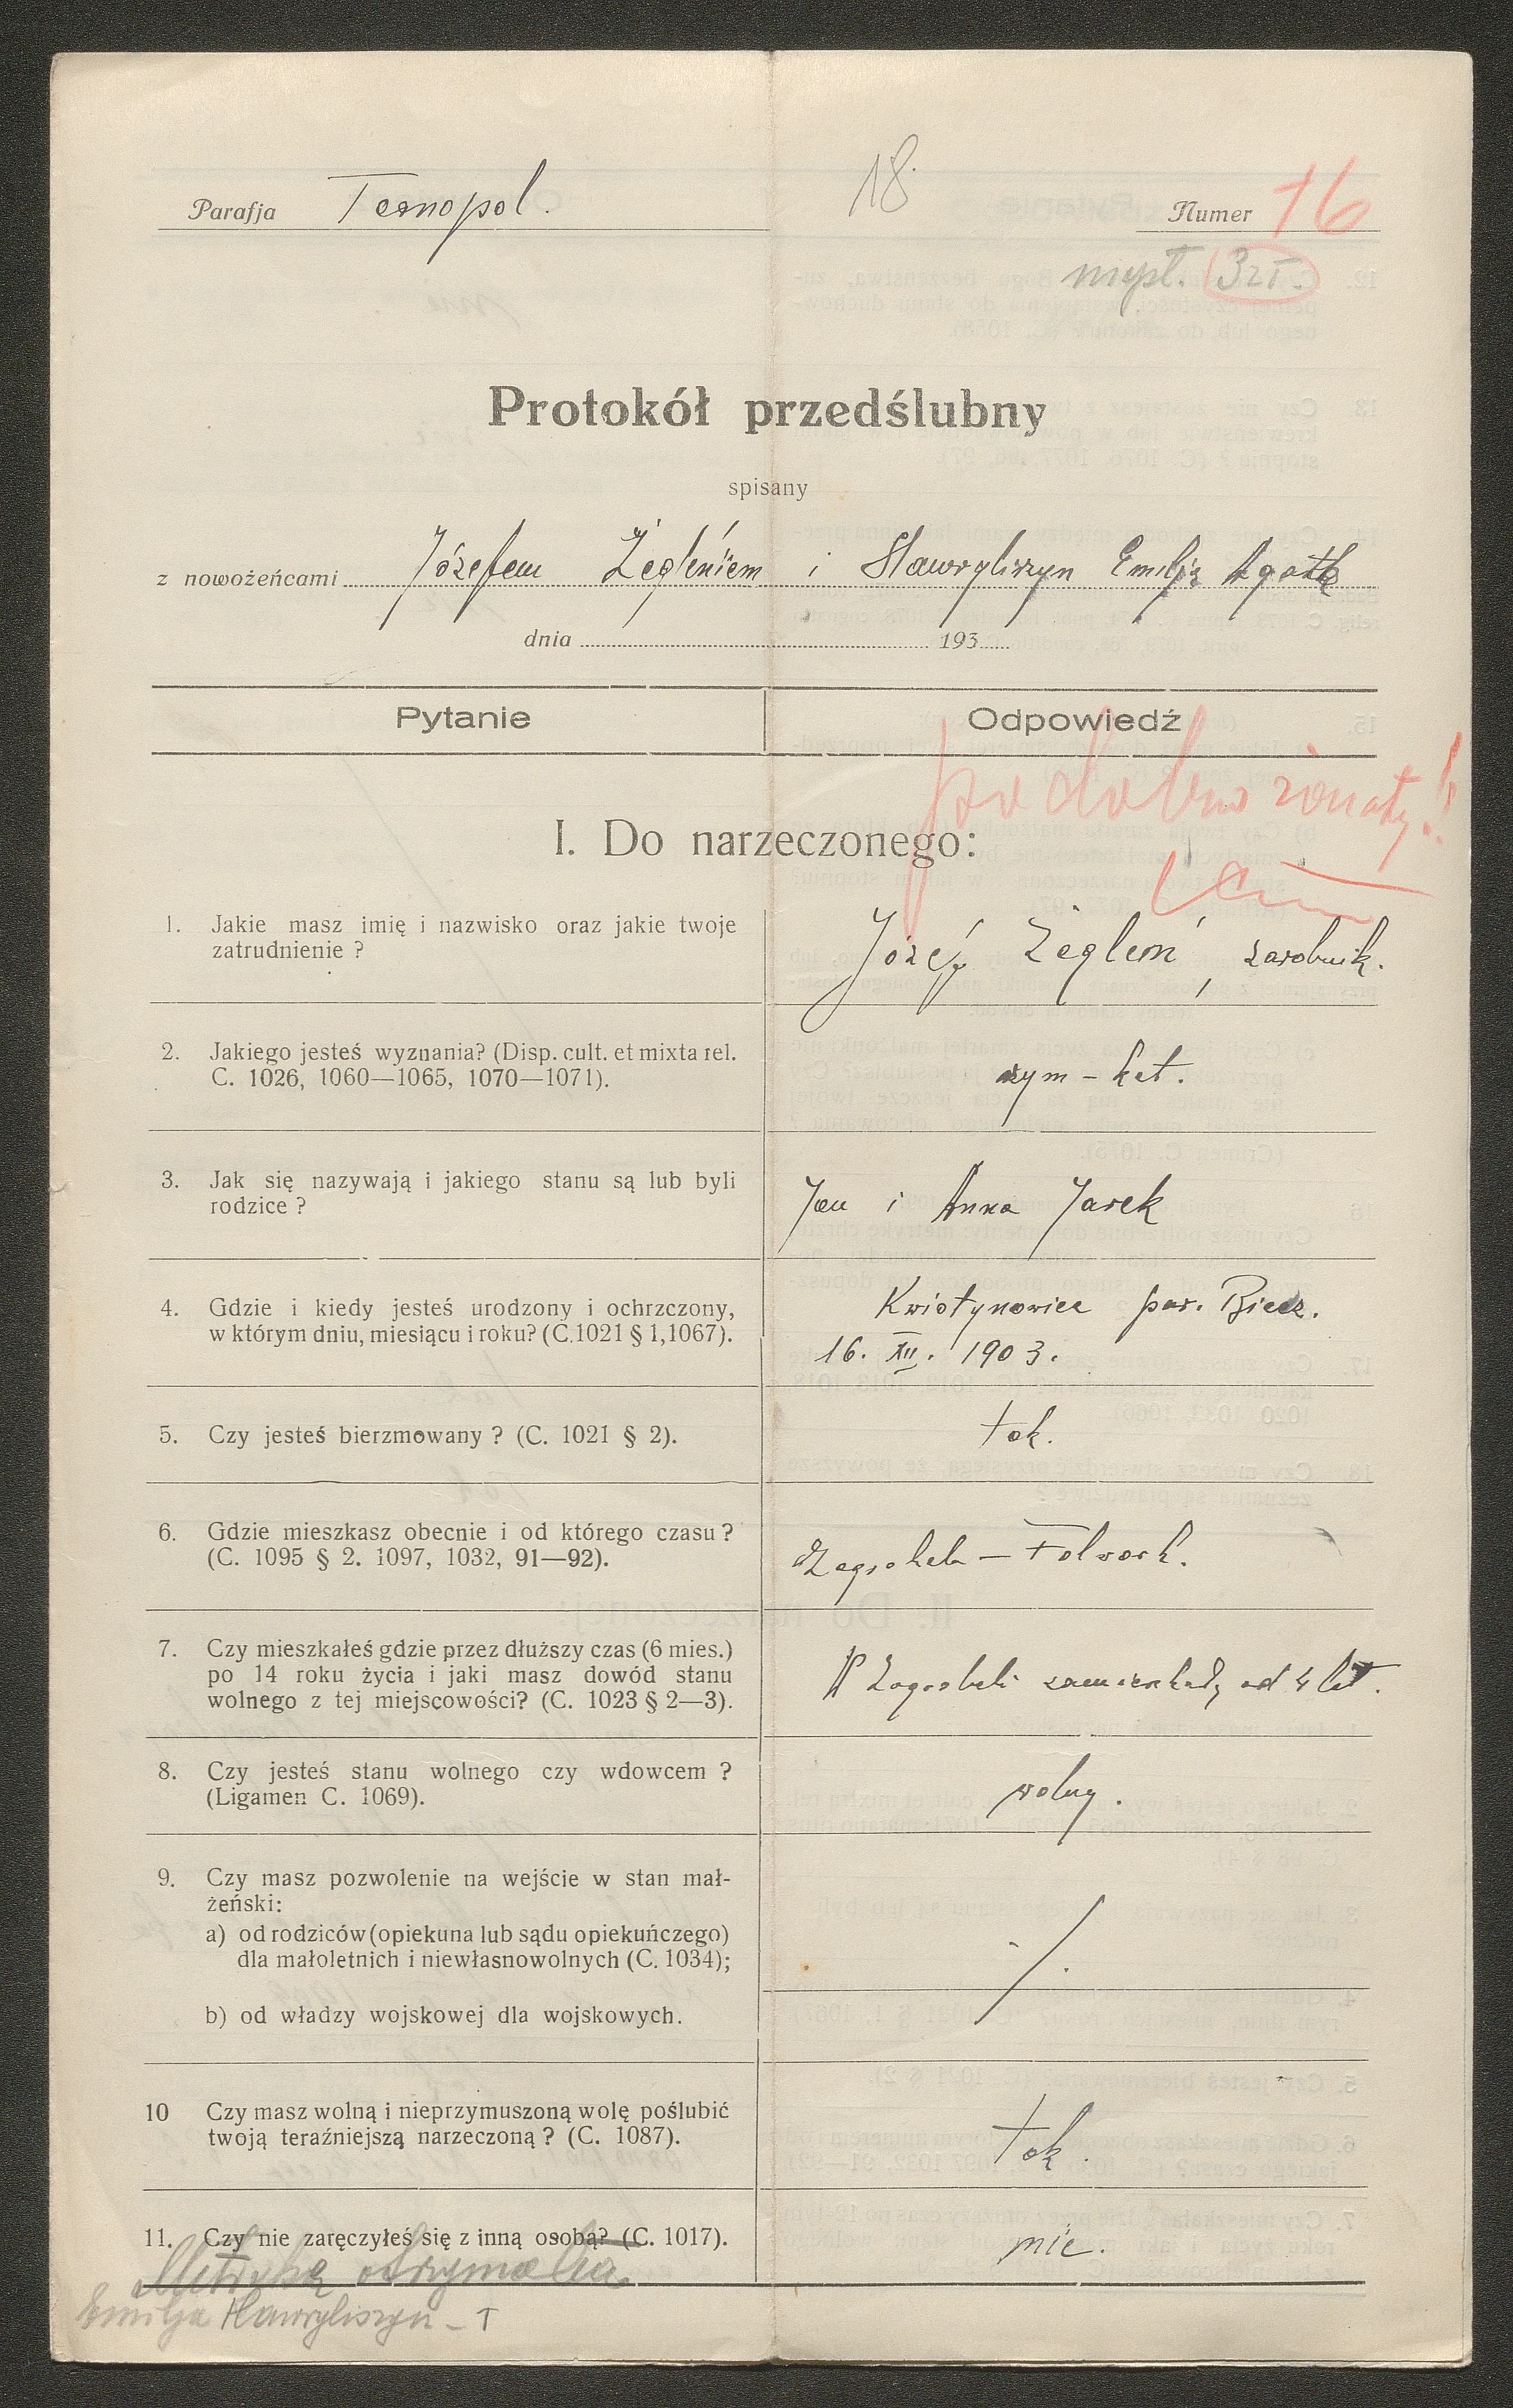 Parafja Tarnopol. 18. Numer 16
niepł. 3 zł.
Protokół przedślubny
spisany
z nowożeńcami Józefem Żegleniem i Hawryliszyn Emilją Agatą
dnia 193
Pytanie Odpowiedź
podobno żonaty!
I. Do narzeczonego:
1. Jakie masz imię i nazwisko oraz jakie twoje
zatrudnienie ?
Józef Żegleń, zarobnik.
2. Jakiego jesteś wyznania? (Disp. cult. et mixta rel.
C. 1026, 1060—1065, 1070—1071).
rym-kat.
3. Jak się nazywają i jakiego stanu są lub byli
rodzice ?
Jan i Anna Jarek
4. Gdzie i kiedy jesteś urodzony i ochrzczony,
w którym dniu, miesiącu i roku? (C.1021 § 1,1067).
par. Biecz.
16. XII. 1903.
5. Czy jesteś bierzmowany ? (C. 1021 § 2).
tak.
6. Gdzie mieszkasz obecnie i od którego czasu ?
(C. 1095 § 2. 1097, 1032, 91—92).
Zagrobela — Folwark.
7. Czy mieszkałeś gdzie przez dłuższy czas (6 mies.)
po 14 roku życia i jaki masz dowód stanu
wolnego z tej miejscowości? (C. 1023 § 2—3).
W Zagrobeli od 4 lat.
8. Czy jesteś stanu wolnego czy wdowcem ?
(Ligamen C. 1069).
wolny.
9. Czy masz pozwolenie na wejście w stan mał-
żeński:
a) od rodziców (opiekuna lub sądu opiekuńczego)
dla małoletnich i niewłasnowolnych (C. 1034);
b) od władzy wojskowej dla wojskowych.
10 Czy masz wolną i nieprzymuszoną wolę poślubić
twoją teraźniejszą narzeczoną ? (C. 1087).
tak.
11. Czy nie zaręczyłeś się z inną osobą? (C. 1017).
nie.
Metrykę otrzymała
Emilja Hawryliszyn